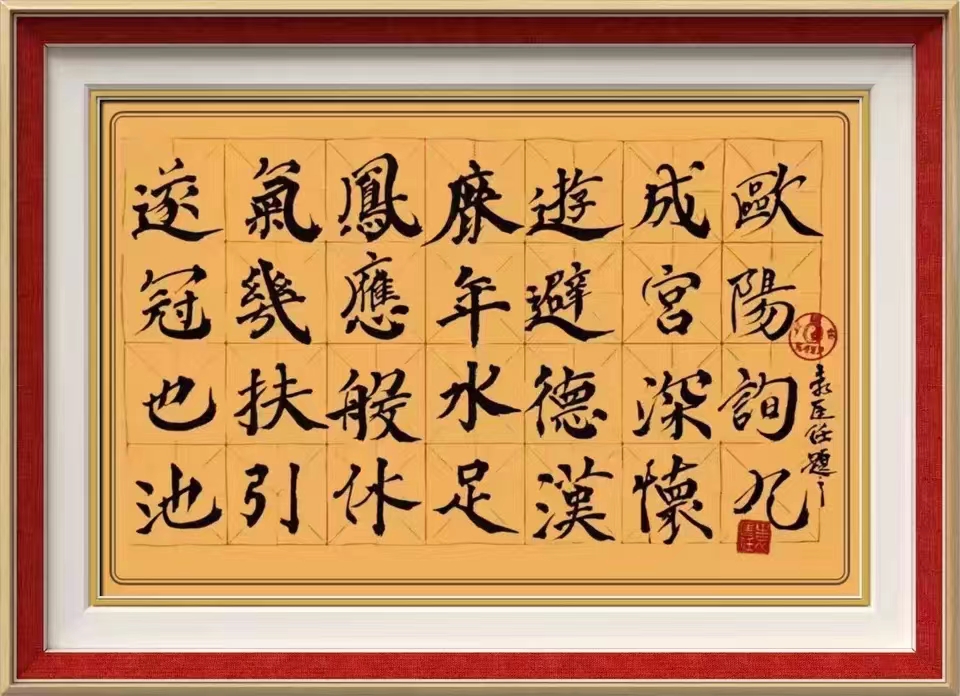 歐陽詢九
成宮深懷
遊避德漢
年水足
鳳應休
氣幾扶引
遂冠也池
任題